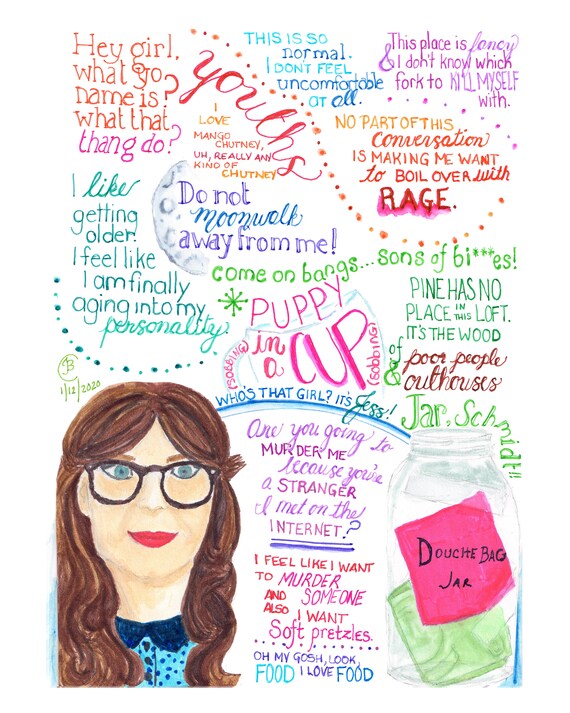 Hey girl,
what yo
name is?
what that
thang do?
youths
I
LOVE
MANGO
CHUTNEY,
UH, REALLY ANY
KIND OF
CHUTNEY
THIS IS SO
normal.
I DON'T FEEL
uncomfortable
AT all.
This place is fancy
& I don't know which
fork to KILL MYSELF
with.
NO PART OF THIS
conversation
IS MAKING ME WANT
to BOIL OVER with
RAGE.
I like
getting
older.
I feel like
I am finally
aging into my
personality
Do not
moonwalk
away from me!
come on bangs... sons of bi***es!
PUPPY
in
a CUP
(SOBBING)
(SOBBING)
PINE HAS NO
PLACE IN THIS LOFT.
IT'S THE WOOD
of poor people
& outhouses
WHO'S THAT GIRL? IT'S Jess!
Jar, Schmidt!!
JB
1/12/2020
Are you going to
MURDER ME
because you're
a STRANGER
I met on the
INTERNET?
DOUCHEBAG
JAR
I FEEL LIKE I WANT
TO MURDER
AND SOMEONE
ALSO I WANT
Soft pretzles.
OH MY GOSH, LOOK,
FOOD I LOVE FOOD